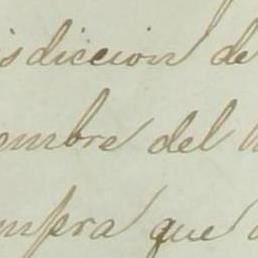 isdiccion de
embre del
mpera que